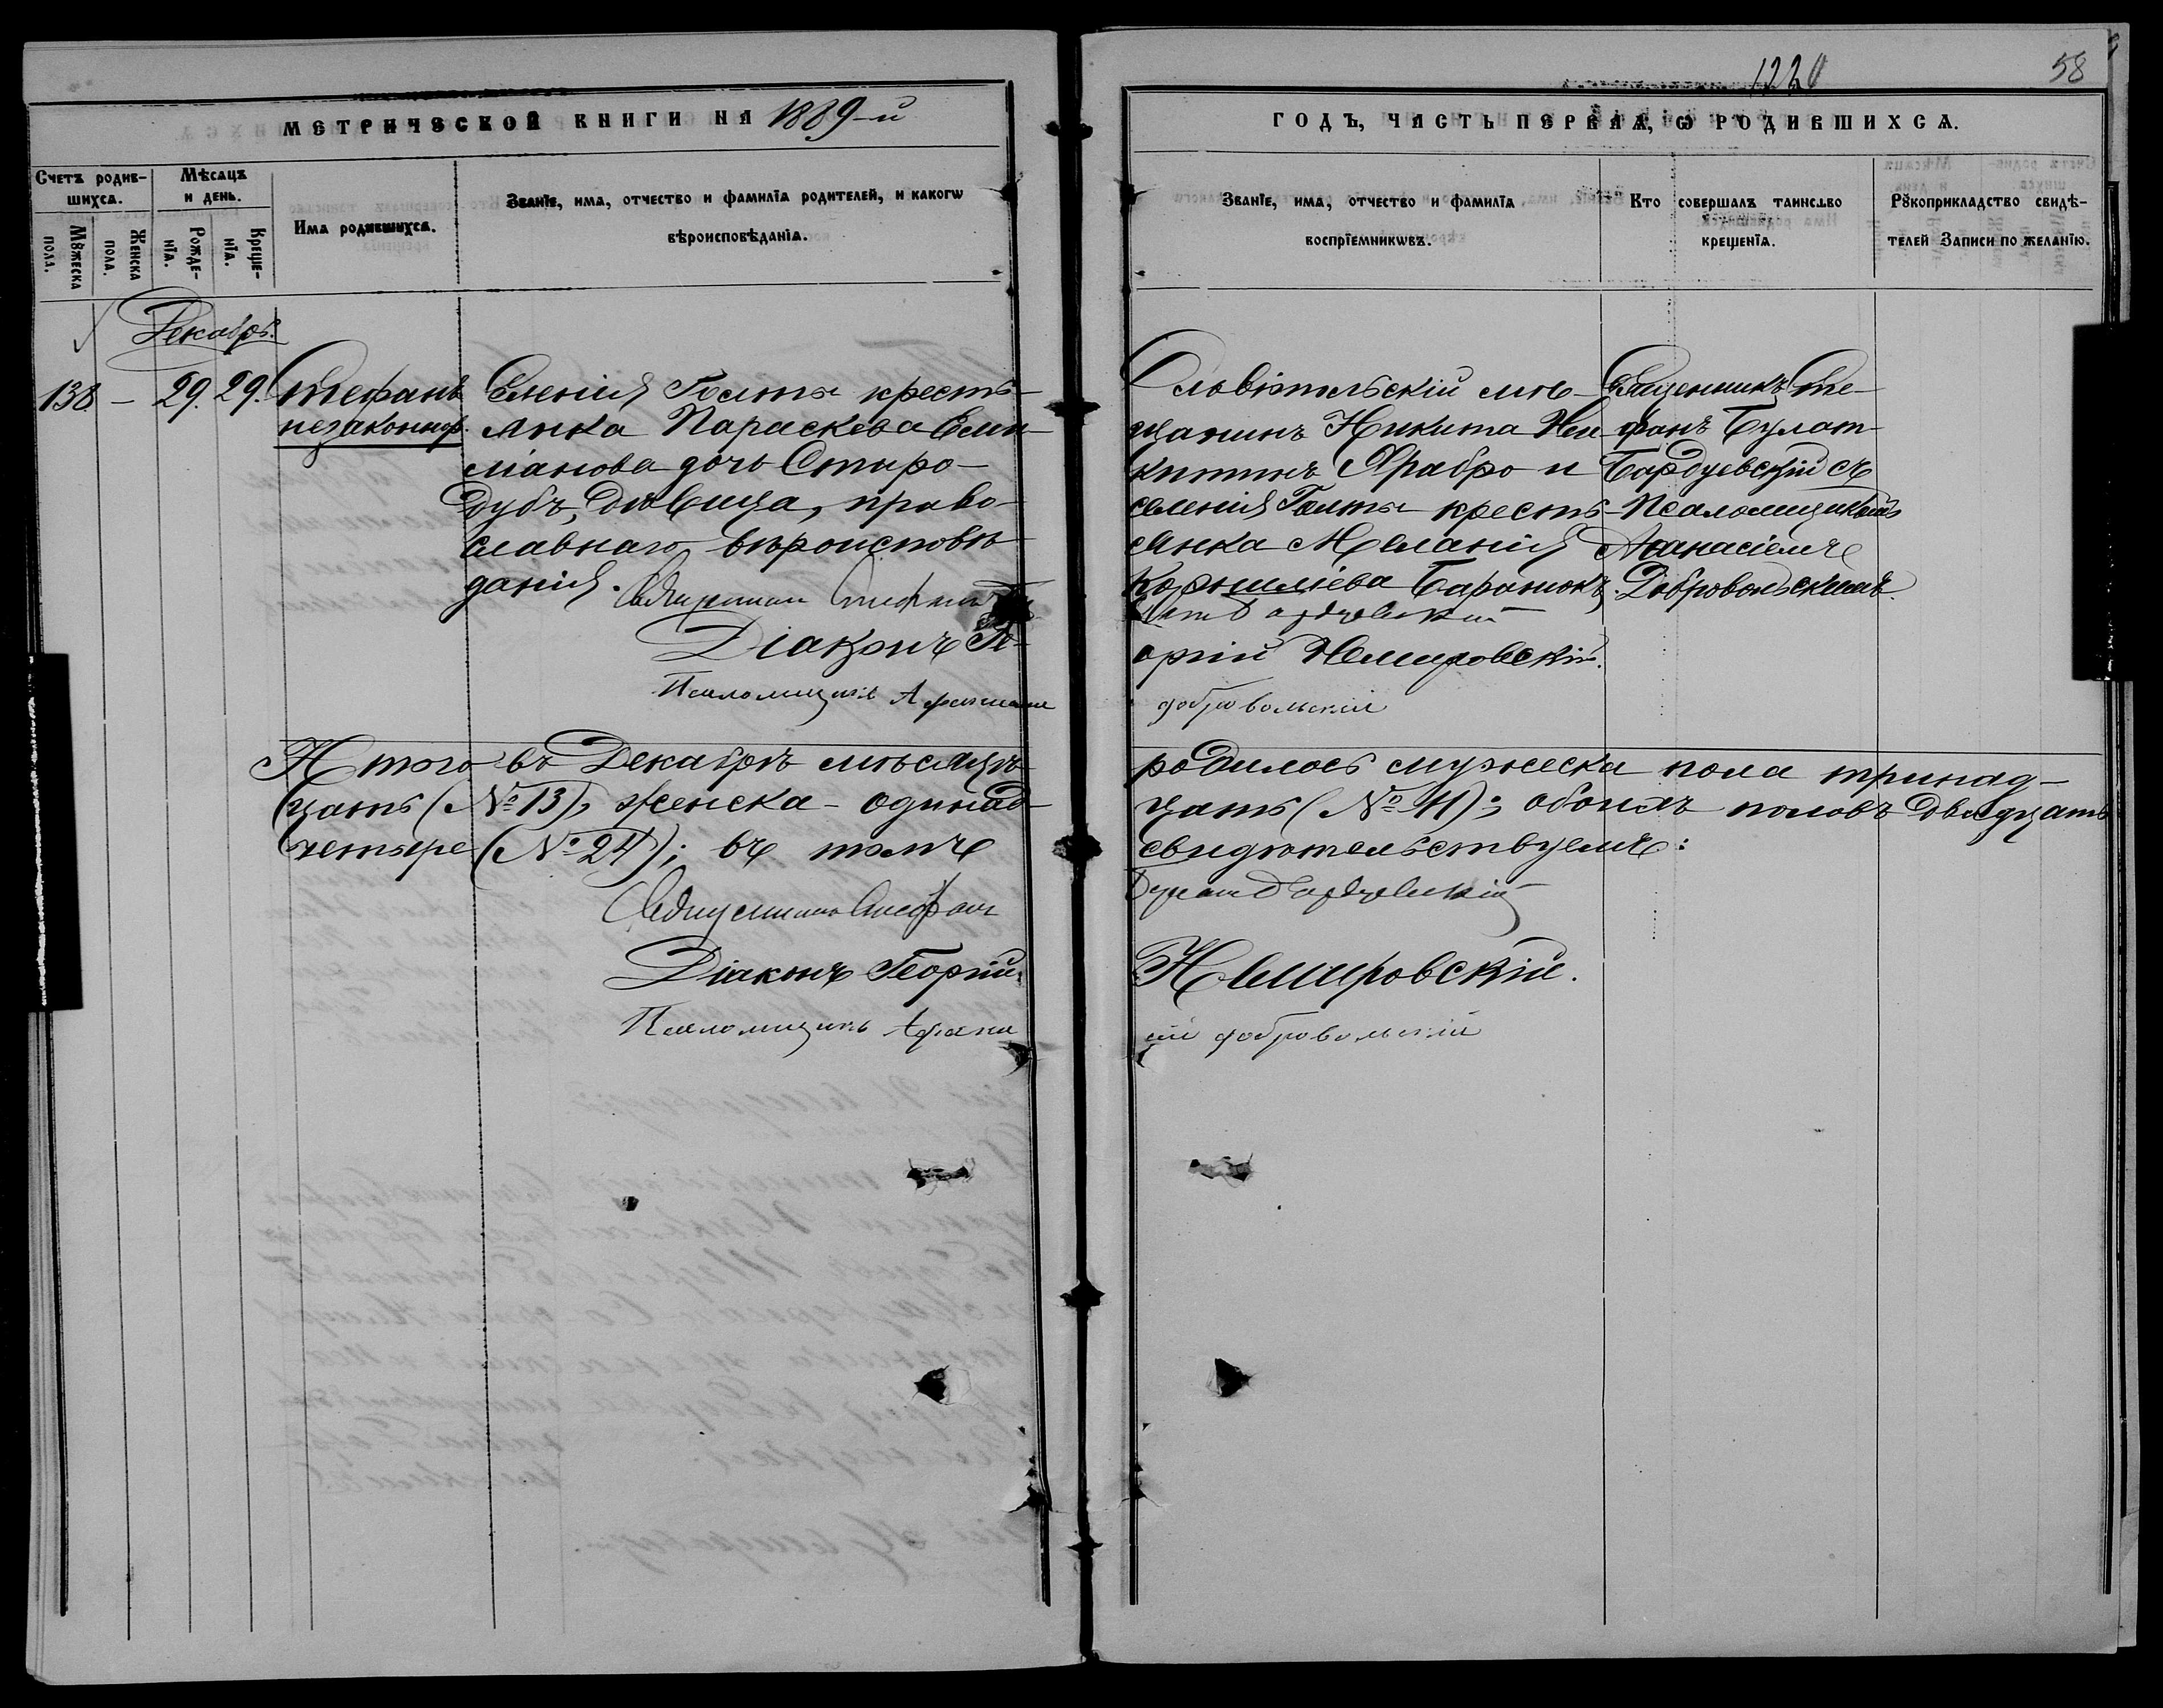 1220
58
МЕТРИЧЕСКОЙ КНИГИ НА 1889-й
ГОДЪ, ЧАСТЬ ПЕРВАЯ, Ѡ РОДИВШИХСѦ.
Счетъ родившихсѧ.
Мѣсѧцъ и день.
Мꙋжеска пола.
Женска пола.
Рожденїѧ.
Крещенїѧ.
Имѧ родившихсѧ.
Званїе, имѧ, отчество и фамилїѧ родителей, и какогѡ
вѣроисповѣданїѧ.
Званїе, имѧ, отчество и фамилїѧ
воспрїемникѡвъ.
Кто совершалъ таинство
крещенїѧ.
Рꙋкоприкладство свидѣ-
телей записи по желанїю.
Декабрь.
138 - 29. 29.
Стефанъ
незаконнор.
Селенія Голты кресть-
янка Параскева Емил-
ліанова дочь Старо-
дубъ, дѣвица, право-
славнаго вѣроисповѣ-
данія.
Ольвіопольскій мѣ-
щанинъ Никита Ни-
китинъ Храбро и
селенія Голты кресть-
янка Меланія
Корниліева Баранюкъ.
Священникъ Сте-
фанъ Булат-
Бардуевскій съ
Псаломщикомъ
Аѳанасіемъ
Добровольскимъ.
Священникъ Стефанъ
Діаконъ Ге-
оргій Немировскій.
Псаломщикъ Афанасій
Добровольскій
Итого въ Декабрѣ мѣсяцѣ родилось мужеска пола тринад-
цать (№ 13), женска - одинад-цать (№ 11); обоихъ половъ двадцать
четыре (№ 24); въ томъ свидѣтельствуемъ:
Священникъ Стефанъ
Діаконъ Георгій Немировскій.
Псаломщикъ Афанасій Добровольскій